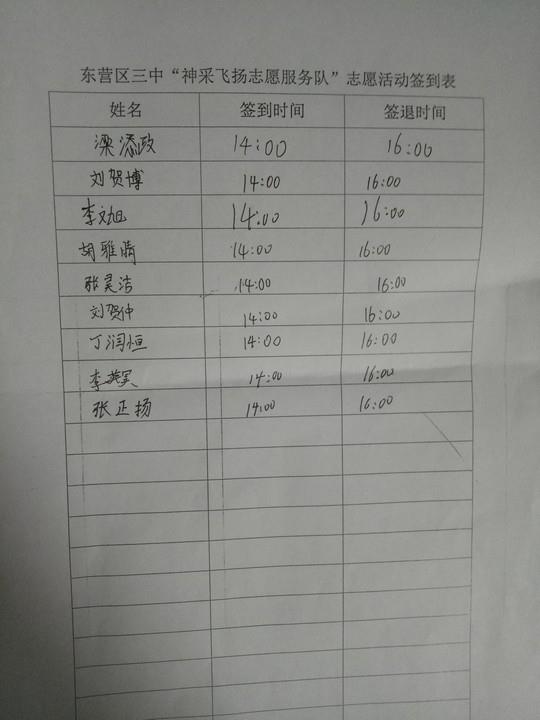 东营区三中“神采飞扬志愿服务队”志愿活动签到表
姓名 签到时间 签退时间
梁添政 14:00 16:00
刘贺博 14:00 16:00
李文旭 14:00 16:00
胡雅晴 14:00 16:00
张昊洁 14:00 16:00
刘贺仲 14:00 16:00
丁润恒 14:00 16:00
14:00 16:00
张正扬 14:00 16:00